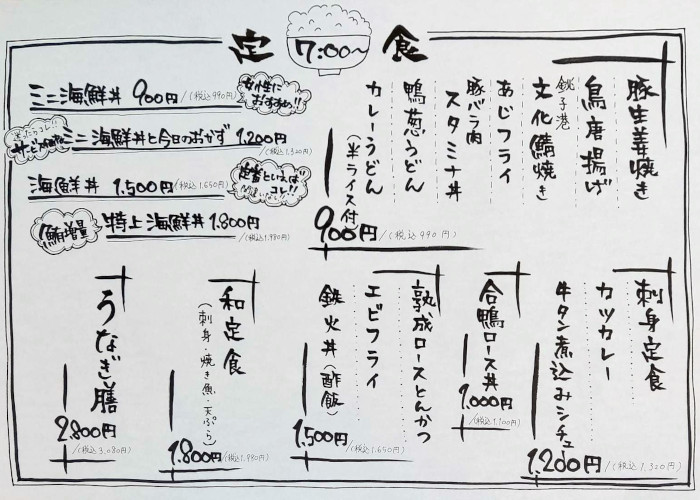 定 7:00〜 食
ミニ海鮮丼 900円/(税込990円)
女性に
おすすめ!!
ミニ海鮮丼と今日のおかず 1,200円
(税込1,320円)
海鮮丼 1,500円/(税込1,650円)
コレ!!
鮪増量
特上海鮮丼 1,800円
/(税込1,980円)
豚生姜焼き
鳥唐揚げ
銚子港
文化鯖焼き
あじフライ
豚バラ肉
スタミナ丼
鴨葱うどん
カレーうどん
(半ライス付)
900円/(税込990円)
刺身定食
カツカレー
牛タン煮込みシチュー
1,200円/(税込1,320円)
合鴨ロース丼
1,000円
/(税込1,100円)
熟成ロースとんかつ
エビフライ
鉄火丼(酢飯)
1,500円
/(税込1,650円)
和定食
(刺身・焼き魚・天ぷら)
1,800円/(税込1,980円)
うなぎ膳
2,800円
/(税込3,080円)